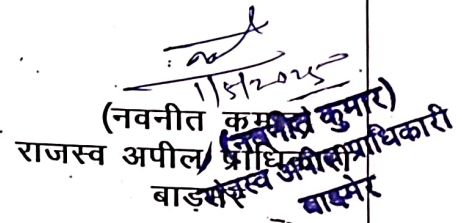 1/5/2025
(नवनीत कुमार)
राजस्व अपील प्राधिकारी
बाड़मेर
(नवनीत कुमार)
राजस्व अपील प्राधिकारी
बाड़मेर